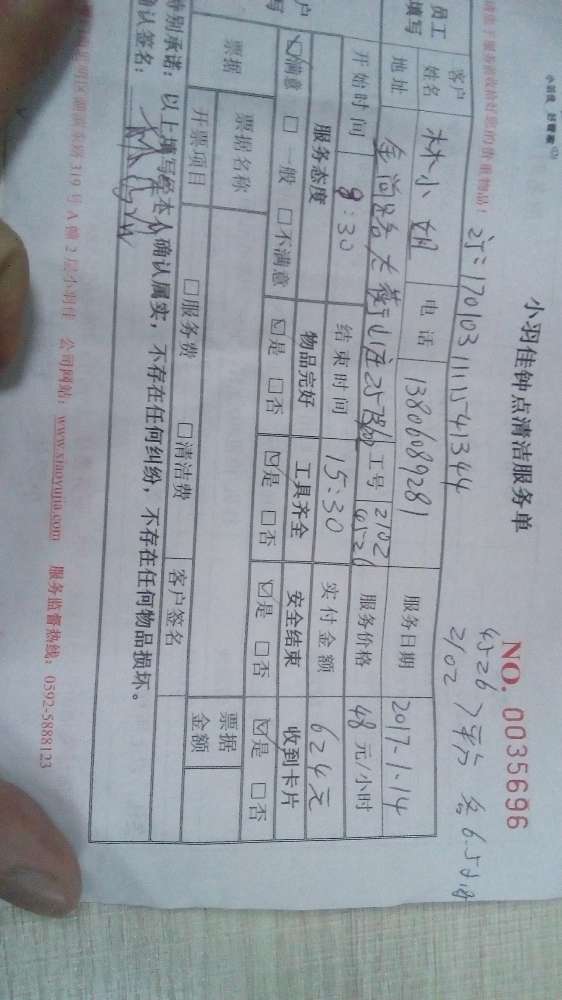 小羽佳钟点清洁服务单
NO. 0035696
订:170103111541344
4526
2102
各6.5小时
客户姓名 林小姐 电话 13806089281 服务日期 2017-1-14
地址 金尚路 工号 2102 4526 服务价格 48元/小时
开始时间 9:30 结束时间 15:30 实付金额 624元
服务态度 物品完好 工具齐全 安全结束 收到卡片
☑满意 □一般 □不满意 ☑是 □否 ☑是 □否 ☑是 □否 ☑是 □否
票据 票据名称 □服务费 □清洁费 客户签名 票据金额
开票项目
特别承诺:以上填写经本人确认属实,不存在任何纠纷,不存在任何物品损坏。
确认签名:
319号A幢2层小羽佳 公司网站:www.xiaoyujia.com 服务监督热线:0592-5888123